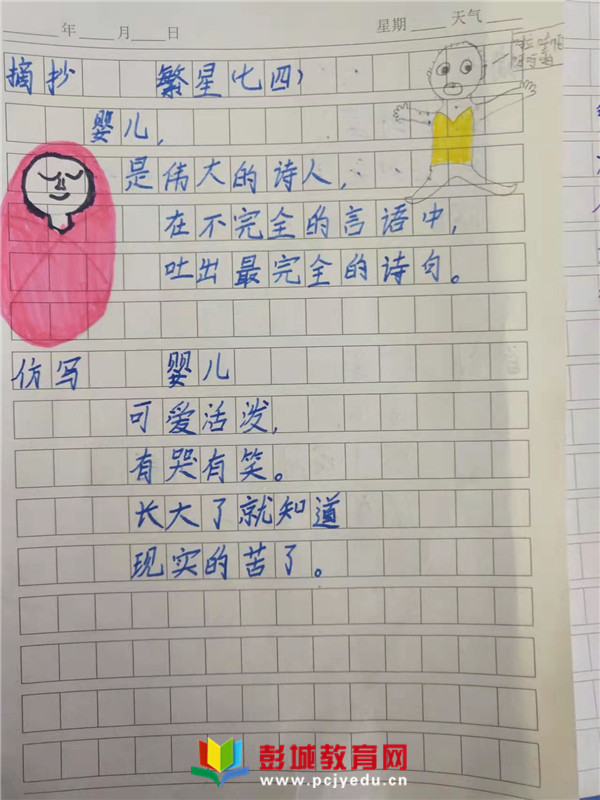 年 月 日 星期 天气
摘抄 繁星(七四)
婴儿,
是伟大的诗人,
在不完全的言语中,
吐出最完全的诗句。
仿写 婴儿
可爱活泼,
有哭有笑。
长大了就知道
现实的苦了。
彭城教育网
www.pcjyedu.cn